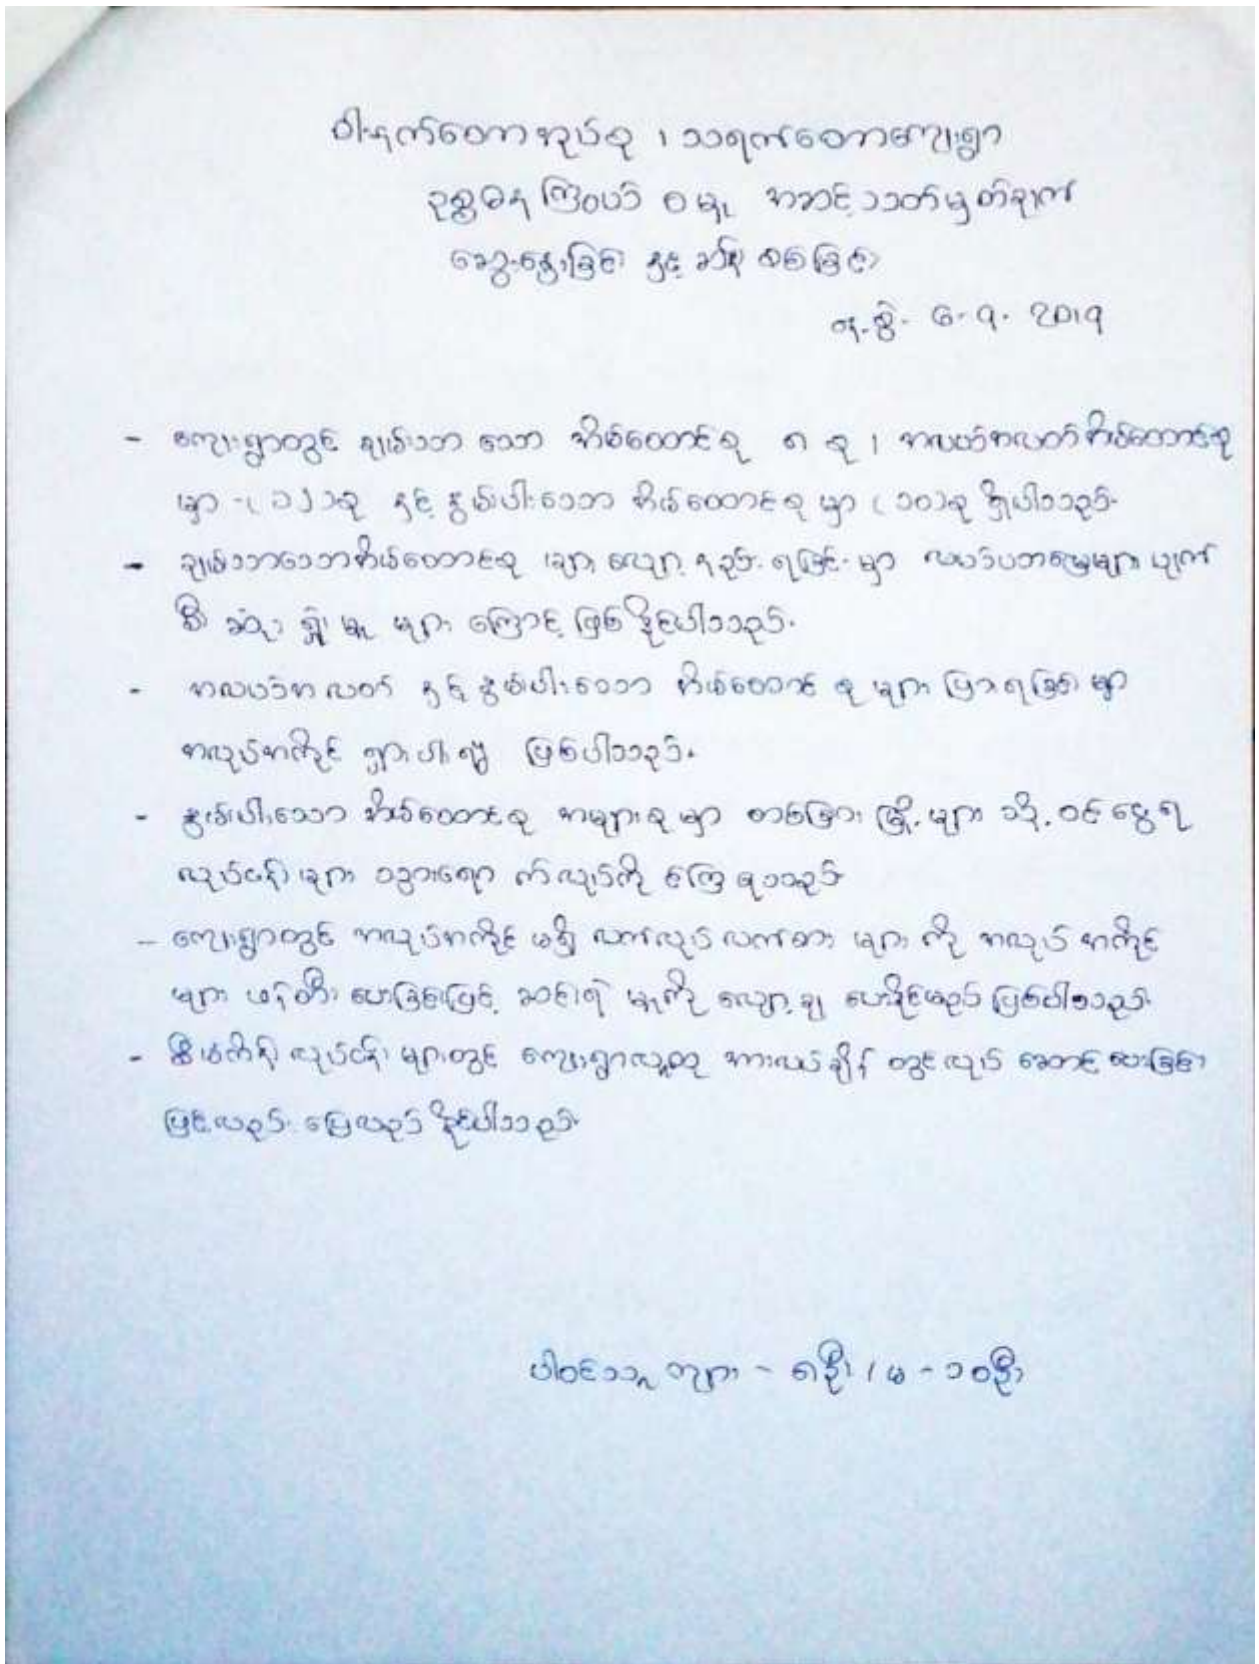 ဝါးနက်တောအုပ်စု ၊ သရက်တောကျေးရွာ
ဥစ္စာဓန ကြွယ်ဝမှု အဆင့်သတ်မှတ်ချက်
ဆွေးနွေးခြင်း နှင့် ဆန်းစစ်ခြင်း
နေ့စွဲ- ၆-၇-၂၀၁၇
- ကျေးရွာတွင် ချမ်းသာသော အိမ်ထောင်စု ၈ စု ၊ အလယ်အလတ်အိမ်ထောင်စု
မှာ - ( ၁၂ ) စု နှင့် နွမ်းပါးသော အိမ်ထောင်စု မှာ ( ၁၀ ) စု ရှိပါသည်။
- ချမ်းသာသောအိမ်ထောင်စု များ လျော့နည်းရခြင်း မှာ လယ်ယာမြေများ ပျက်
စီး ဆုံး ရှုံးမှု များ ကြောင့် ဖြစ်နိုင်ပါသည်။
- အလယ်အလတ် နှင့် နွမ်းပါးသော အိမ်ထောင်စု များ များရခြင်း မှာ
အလုပ်အကိုင် ရှားပါး၍ ဖြစ်ပါသည်။
- နွမ်းပါးသော အိမ်ထောင်စု အများစု မှာ တစ်ခြား မြို့များ သို့ ဝင်ငွေရ
လုပ်ငန်းများ သွားရောက်လုပ်ကိုင်ကြရသည်
- ကျေးရွာတွင် အလုပ်အကိုင် မရှိ လက်လုပ်လက်စား များ ကို အလုပ်အကိုင်
များ ဖန်တီး ပေးခြင်းဖြင့် ဆင်းရဲ မှုကို လျော့ချ ပေးနိုင်မည် ဖြစ်ပါသည်။
- စီမံကိန်း လုပ်ငန်း များတွင် ကျေးရွာလူထု အားလပ်ချိန် တွင် လုပ် ဆောင် ပေးခြင်း
ဖြင့်လည်း ပြေလည်နိုင်ပါသည်။
ပါဝင်သူ ကျား - ၈ဦး / မ - ၁၀ဦး